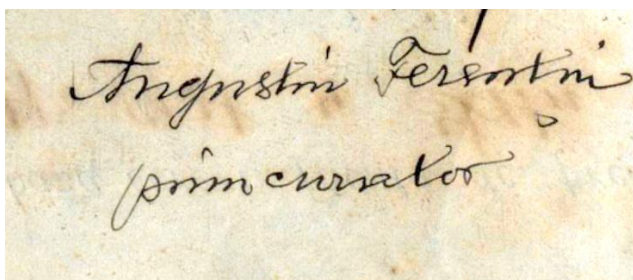 Augustin Ferentin
prim curator